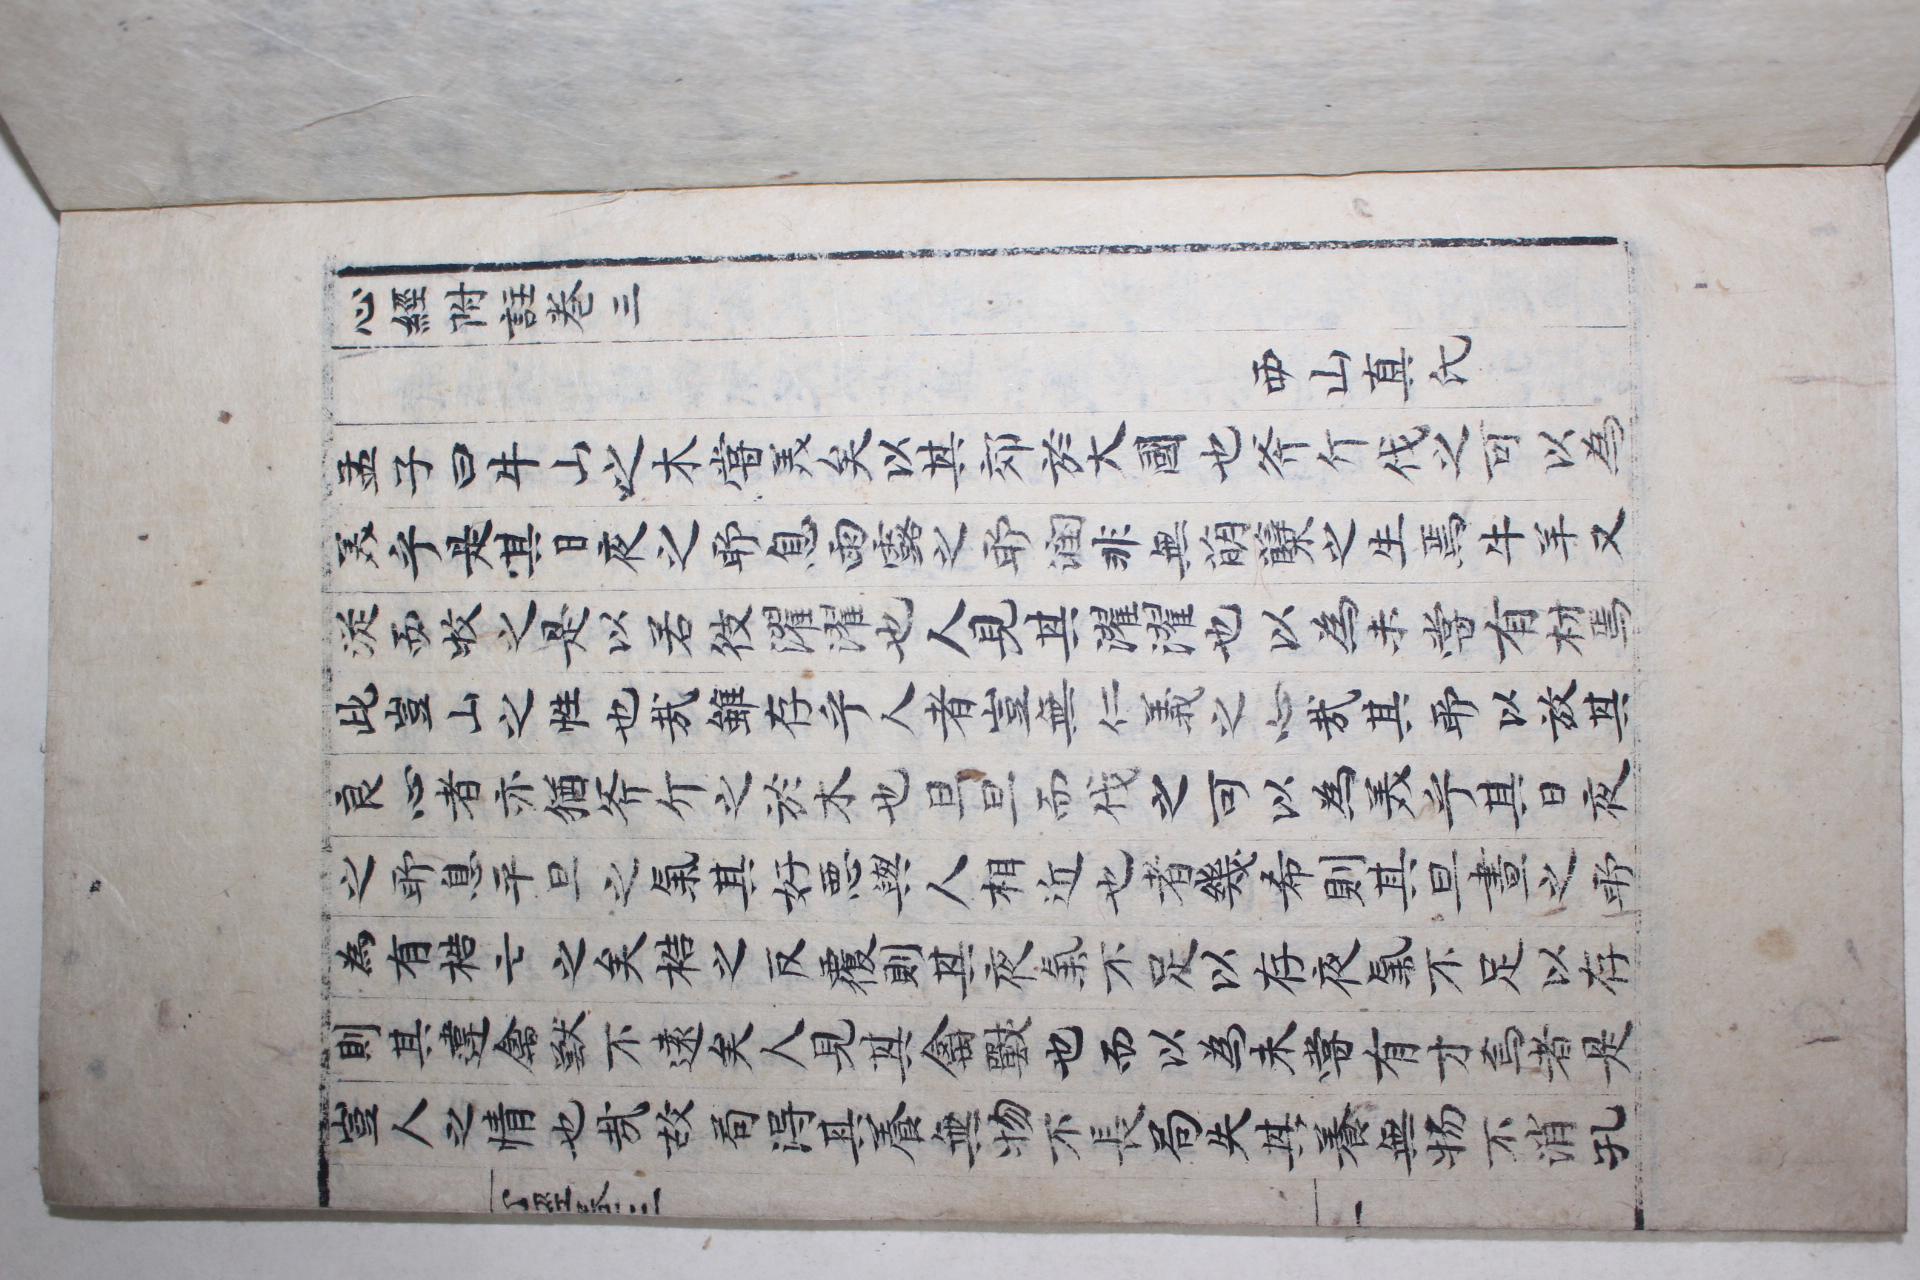 心經附註卷三
西山眞氏
孟子曰牛山之木嘗美矣以其郊於大國也斧斤伐之可以為
美乎是其日夜之所息雨露之所潤非無萌蘗之生焉牛羊又
從而牧之是以若彼濯濯也人見其濯濯也以為未嘗有材焉
此豈山之性也哉雖存乎人者豈無仁義之心哉其所以放其
良心者亦猶斧斤之於木也旦旦而伐之可以為美乎其日夜
之所息平旦之氣其好惡與人相近也者幾希則其旦晝之所
為有梏亡之矣梏之反覆則其夜氣不足以存夜氣不足以存
則其違禽獸不遠矣人見其禽獸也而以為未嘗有才焉者是
豈人之情也哉故苟得其養無物不長苟失其養無物不消孔
心經卷三
一